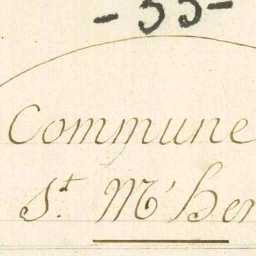 - 55 -
Commune
St. M'her